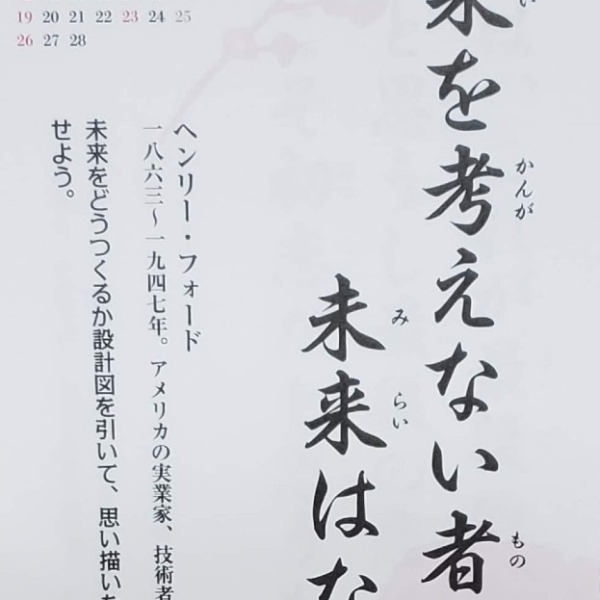 来を考えない者
い
かんが
もの
未来はな
みらい
ヘンリー・フォード
一八六三〜一九四七年。アメリカの実業家、技術者
未来をどうつくるか設計図を引いて、思い描いた
せよう。
19 20 21 22 23 24 25
26 27 28